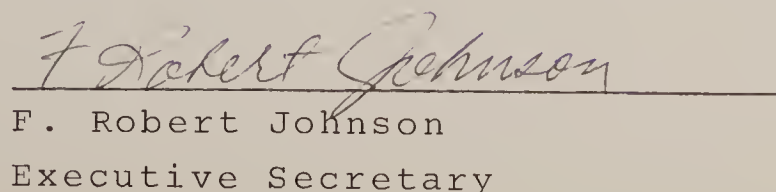 F Robert Johnson
F. Robert Johnson
Executive Secretary